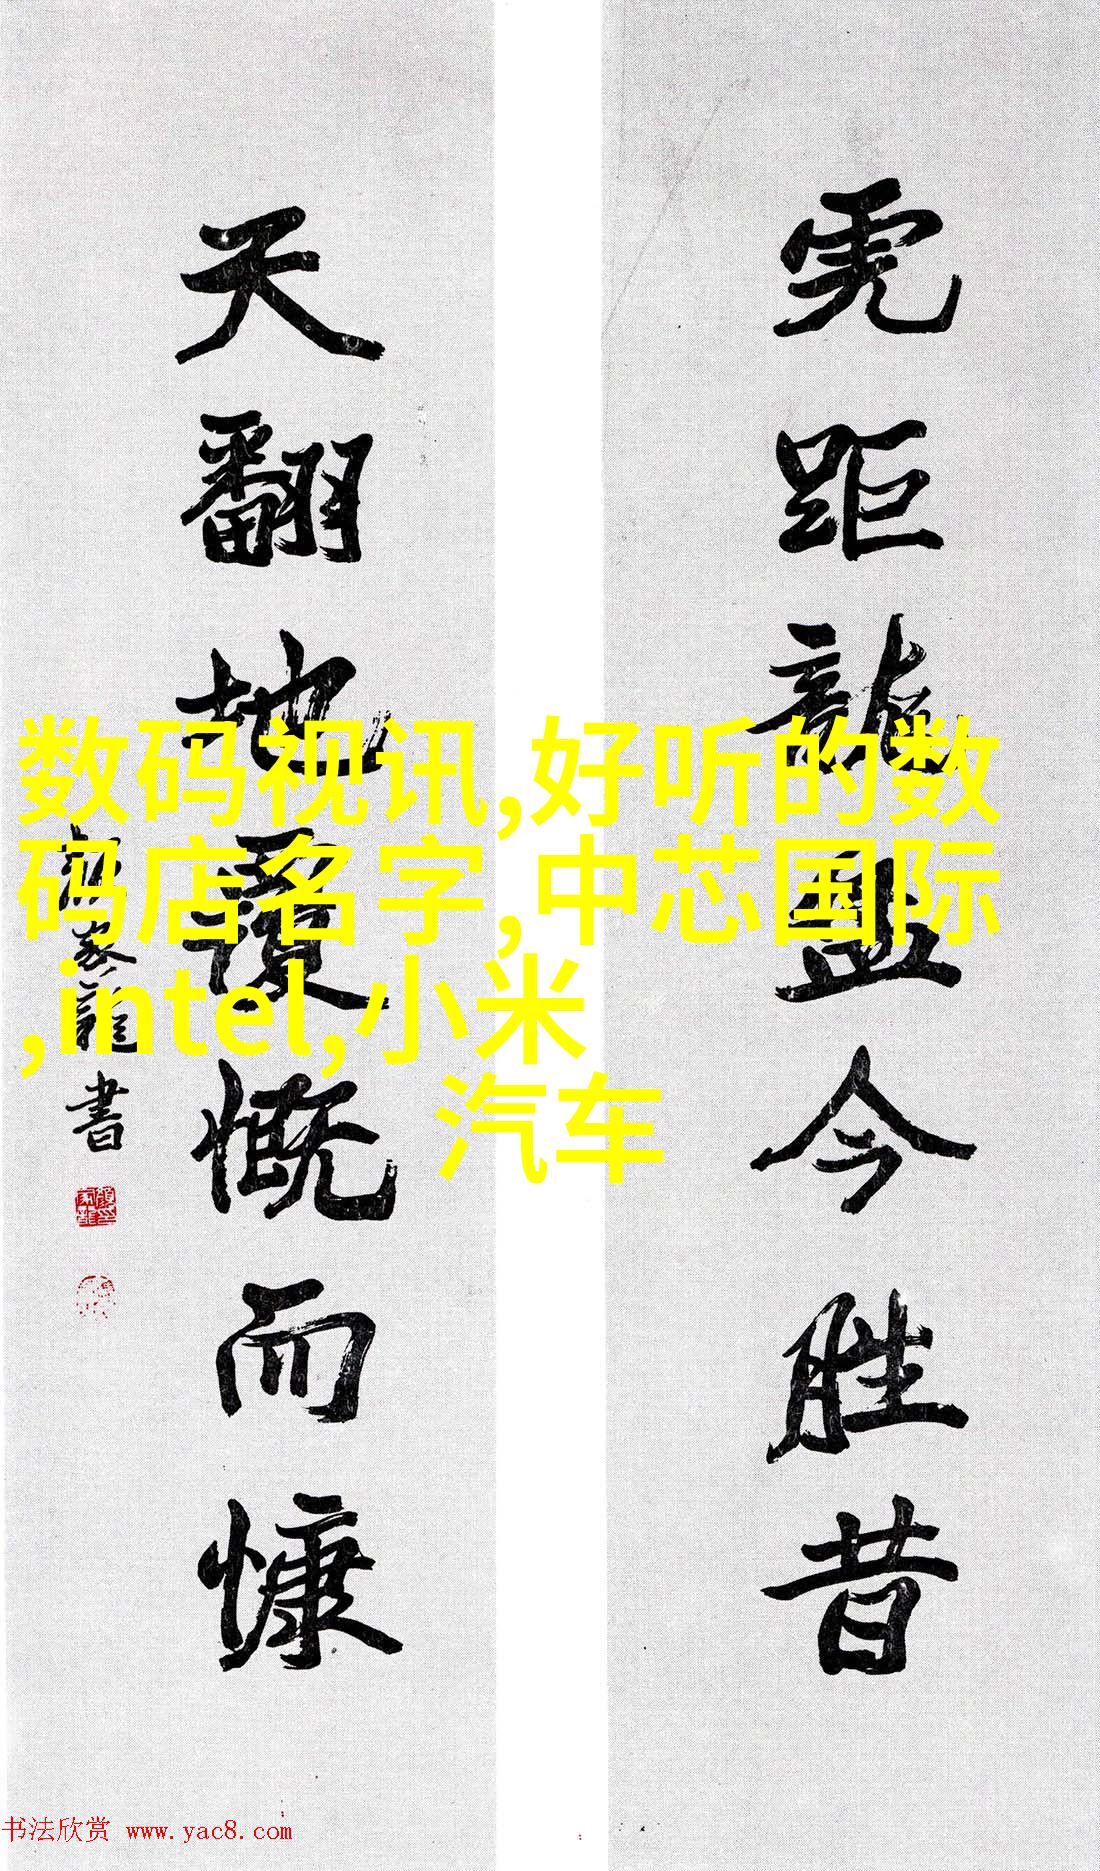 虎距龍盘今胜昔
天翻地覆慨而慷
龍書
数码视讯,好听的数
码店名字,中芯国际
,intel,小米
汽车
书法欣赏 www.yac8.com